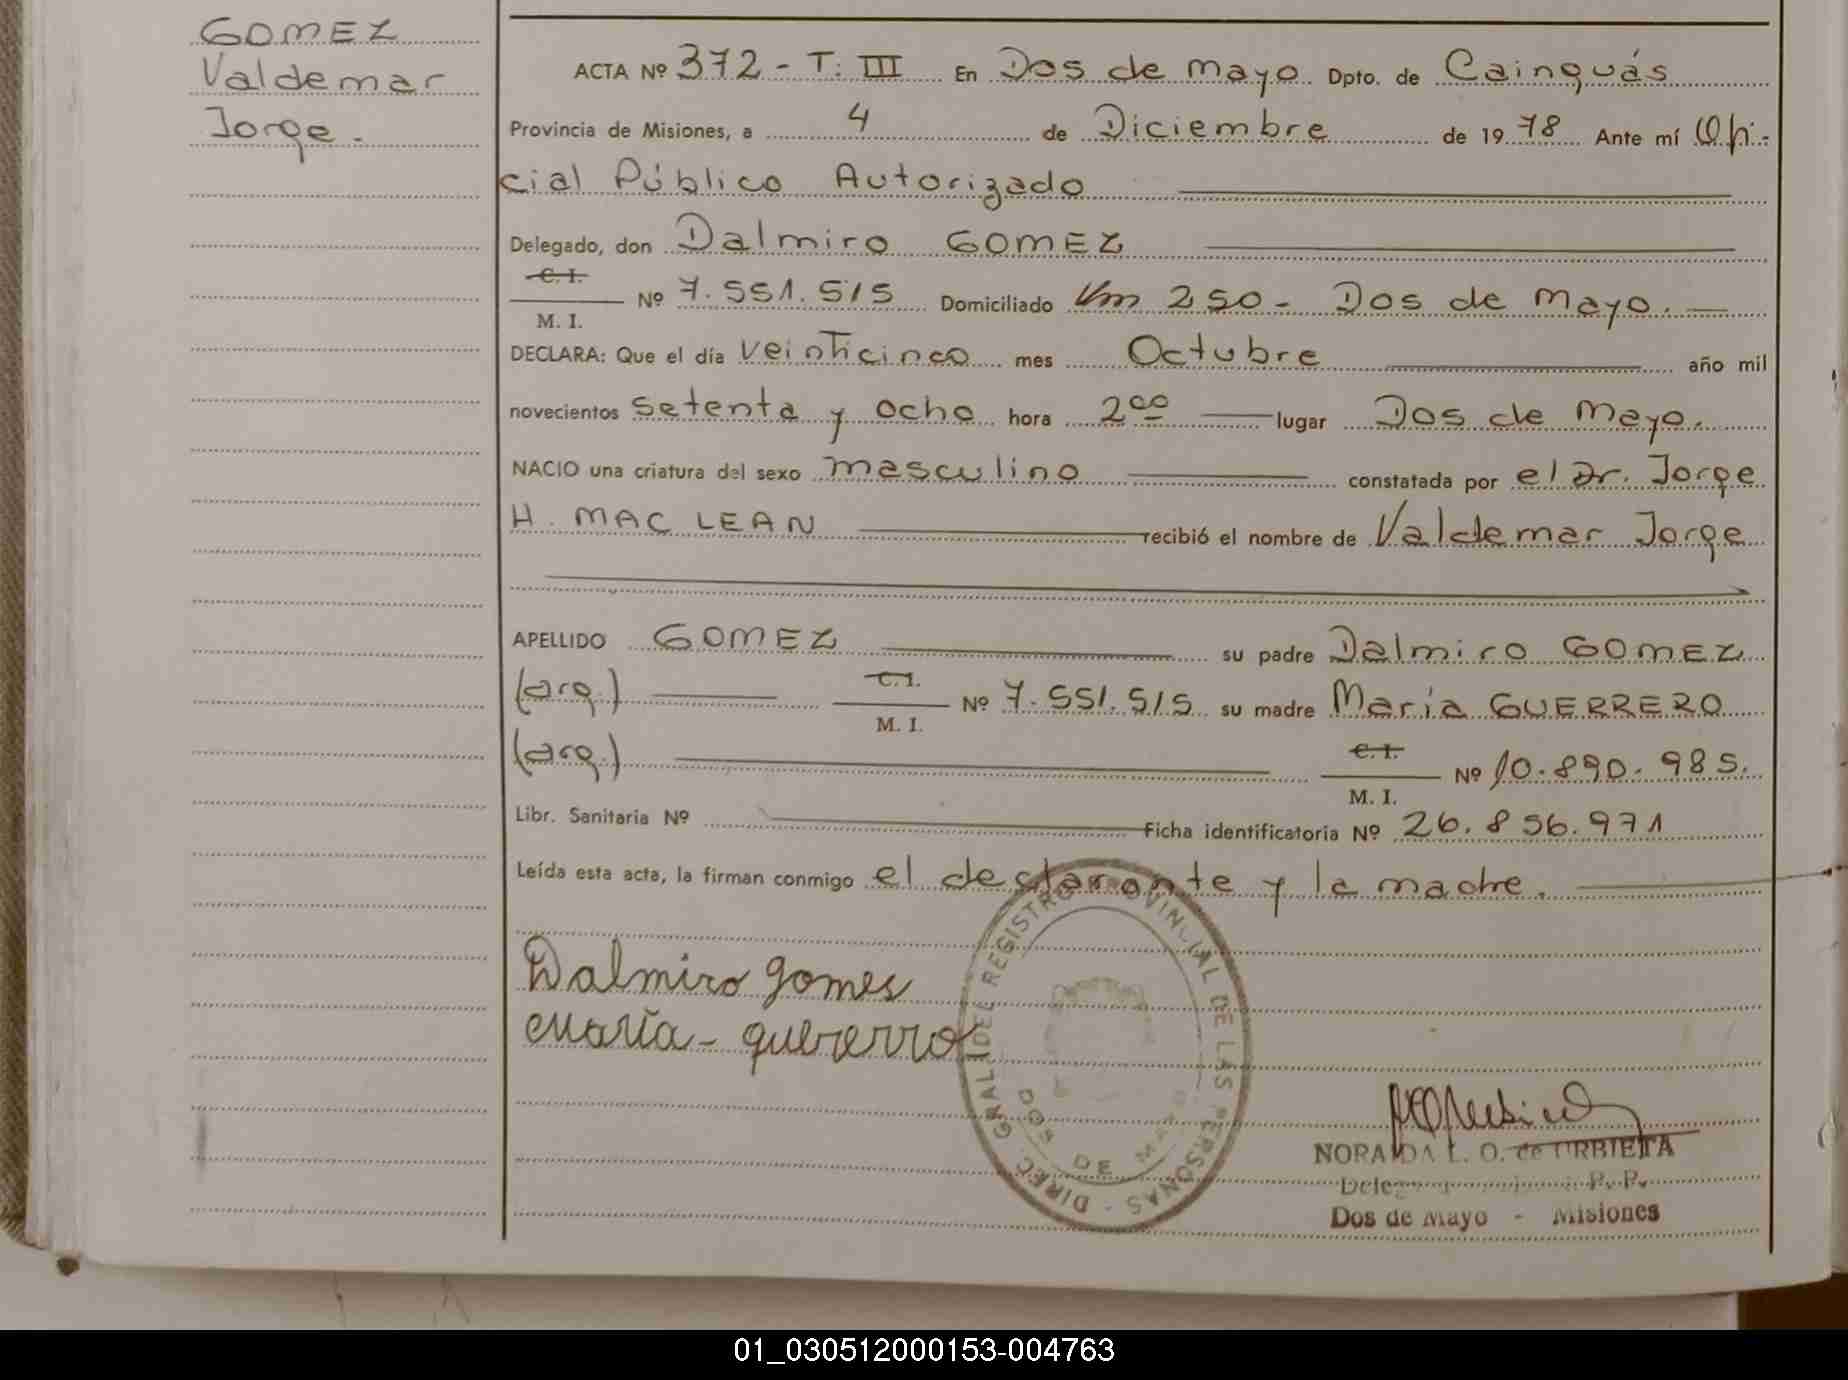 GOMEZ
Valdemar
Jorge.
ACTA Nº 372 - T. III En Dos de Mayo Dpto. de Cainguás
Provincia de Misiones, a 4 de Diciembre de 1978 Ante mí Ofi-
cial Público Autorizado
Delegado, don Dalmiro GOMEZ
C. I.
M. I.
Nº 7.551.515 Domiciliado Km 250 - Dos de Mayo.
DECLARA: Que el día veinticinco mes Octubre año mil
novecientos setenta y ocho hora 2 00 lugar Dos de Mayo.
NACIO una criatura del sexo masculino constatada por el Dr. Jorge
H. MAC LEAN recibió el nombre de Valdemar Jorge
APELLIDO GOMEZ su padre Dalmiro GOMEZ
(arg.) C. I. M. I. Nº 7.551.515 su madre María GUERRERO
(arg.) C. I. M. I. Nº 10.890.985.
Libr. Sanitaria Nº Ficha identificatoria Nº 26.856.971
Leída esta acta, la firman conmigo el declarante y la madre.
Dalmiro gomes
María - guerrero
DIREC. GRAL. DEL REGISTRO PROVINCIAL DE LAS PERSONAS -
DOS DE MAYO
NORAIDA L. O. de URBIETA
R. P.
Dos de Mayo - Misiones
01_030512000153-004763